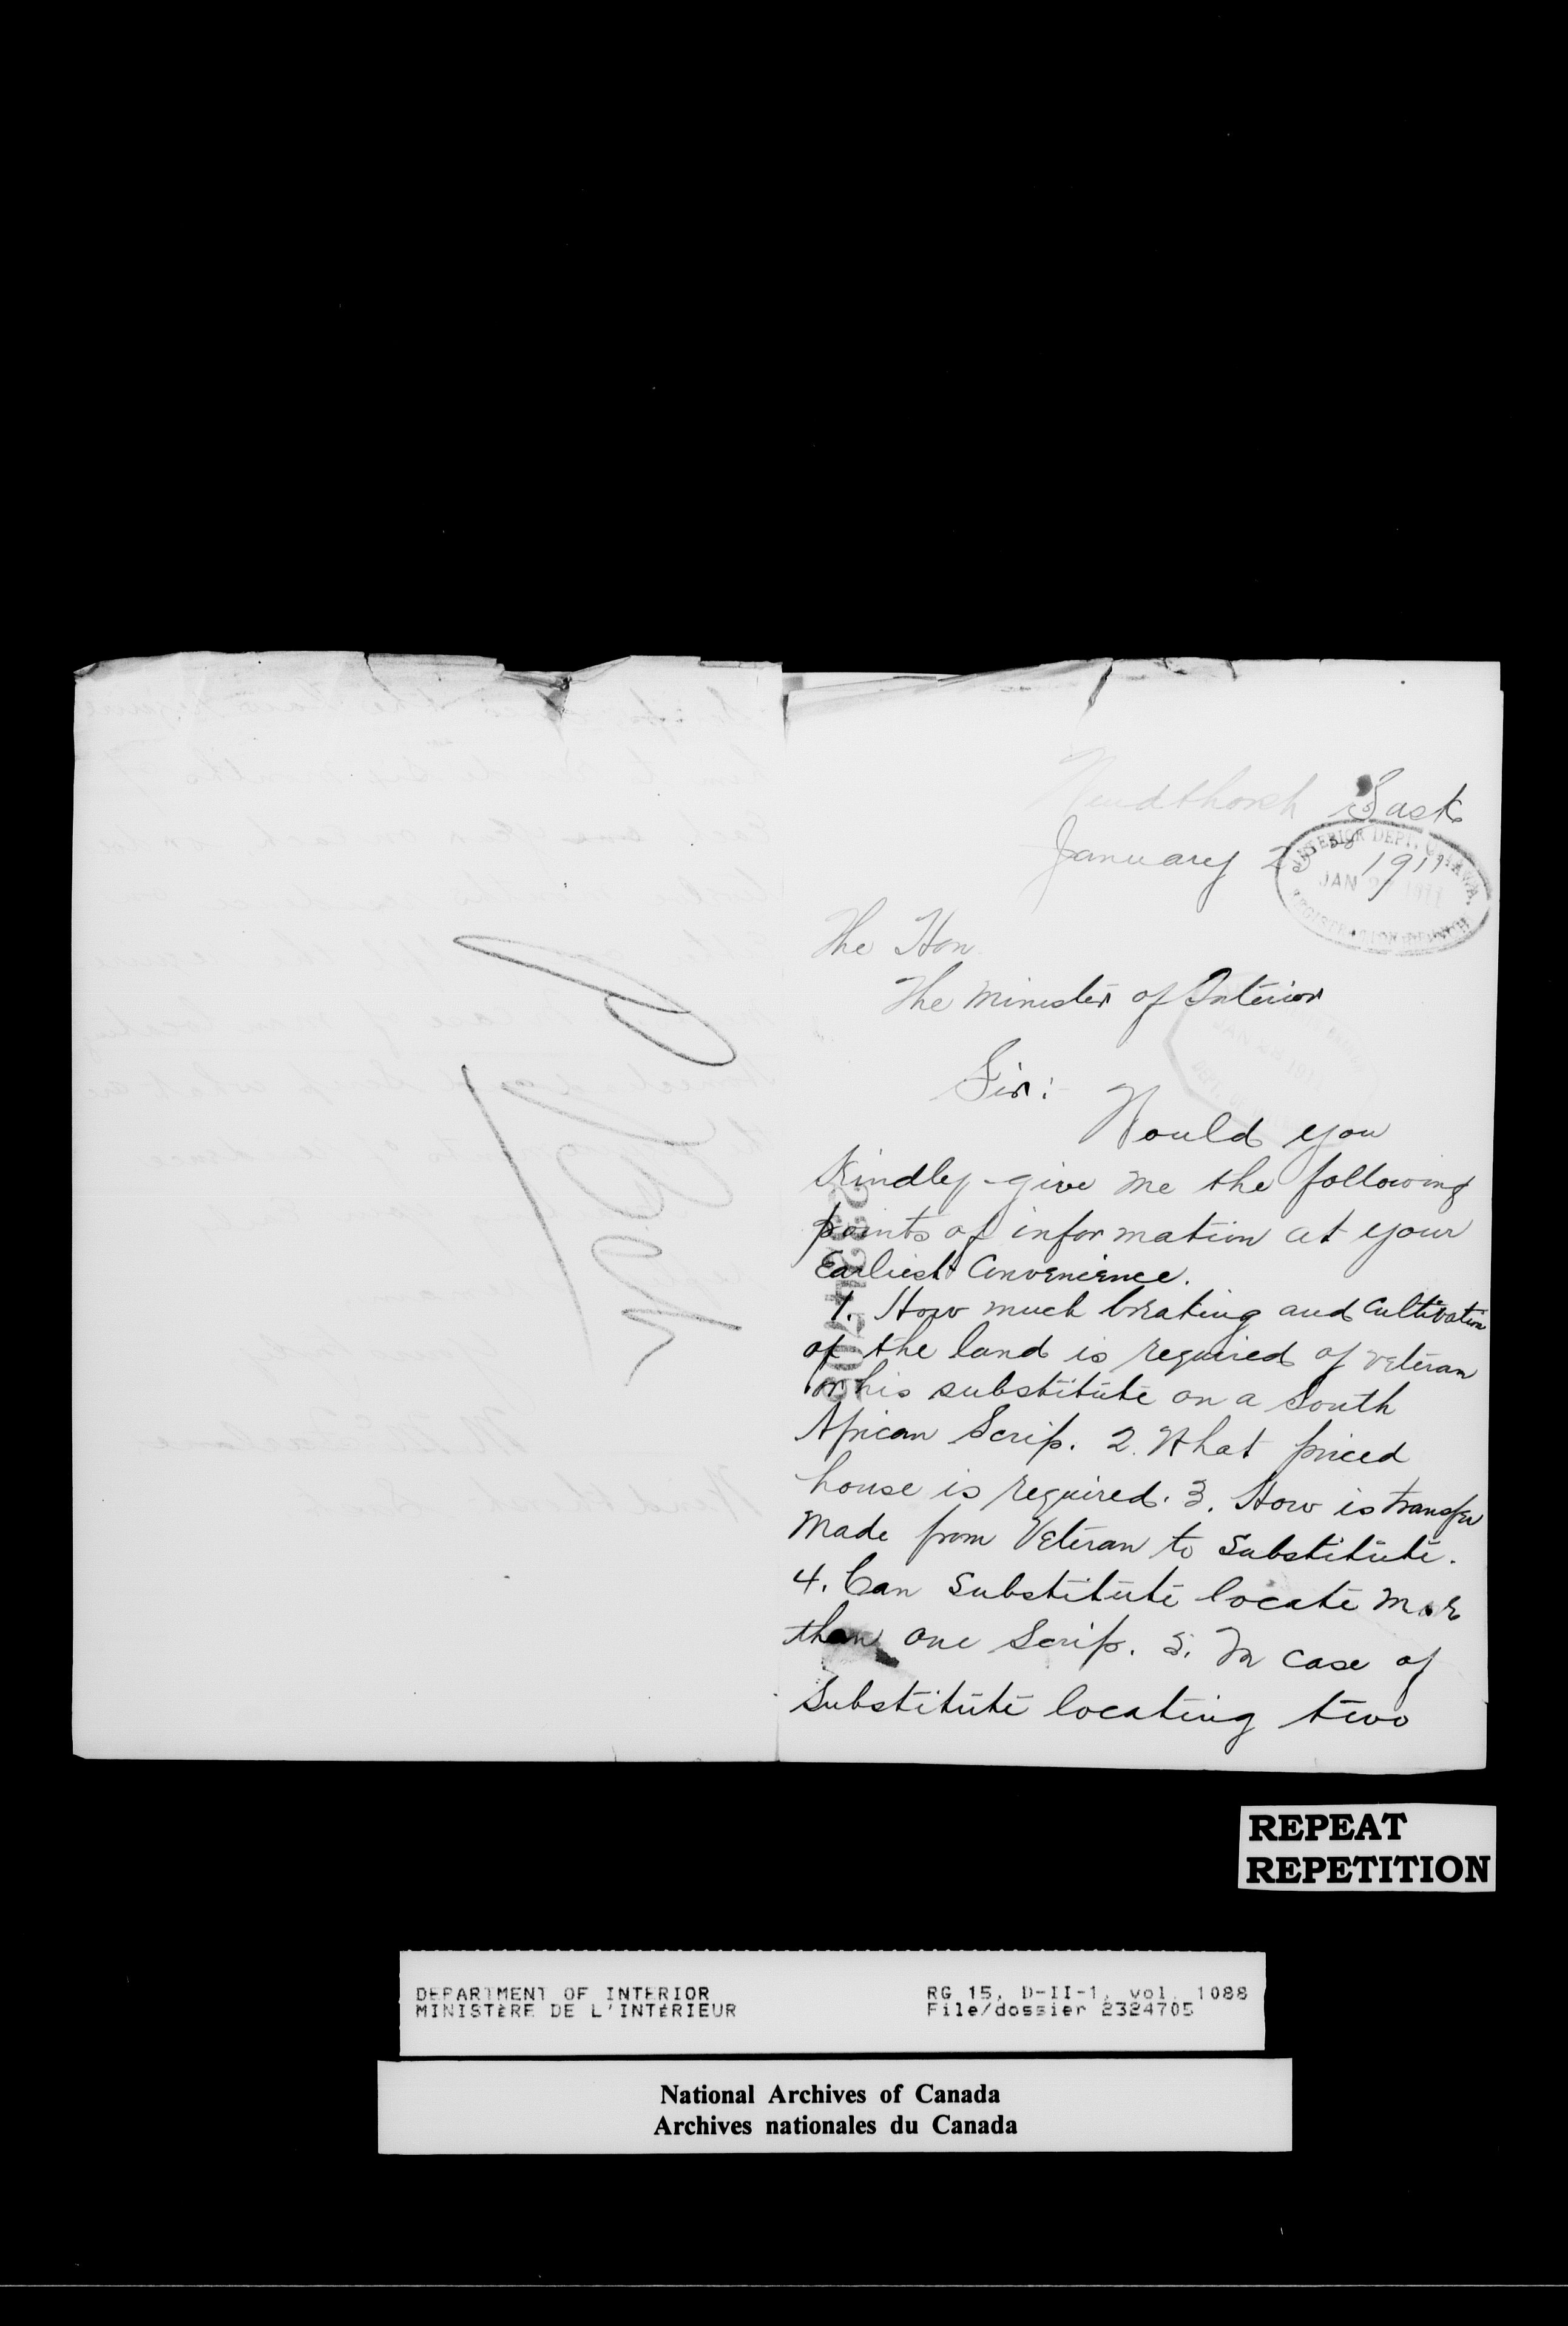 Sask
January 23rd 1911
INTERIOR DEPT. OTTAWA.
JAN 27 1911
REGISTRATION BRANCH
The Hon
The Minister of Interior
Sir:
Would you
Kindly give me the following
points of information at your
Earliest Convenience.
1. How much breaking and Cultivation
of the land is required of veteran
or his substitute on a South
African Scrip. 2. What priced
house is required. 3. How is transfer
Made from Veteran to Substitute.
4. Can Substitute locate More
than one Scrip. 5. In case of
Substitute locating two
2324705
REPEAT
REPETITION
DEPARTMENT OF INTERIOR
MINISTÈRE DE L'INTÉRIEUR
RG 15, D-II-1, vol. 1088
File/dossier 2324705
National Archives of Canada
Archives nationales du Canada